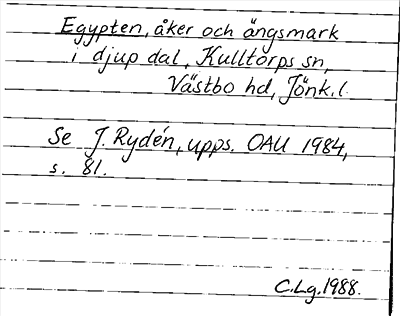 Egypten, åker och ängsmark
i djup dal, Kulltorps sn,
Västbo hd, Jönk.l.
Se J. Rydén, upps. OAU 1984,
s. 81.
C.Lg.1988.